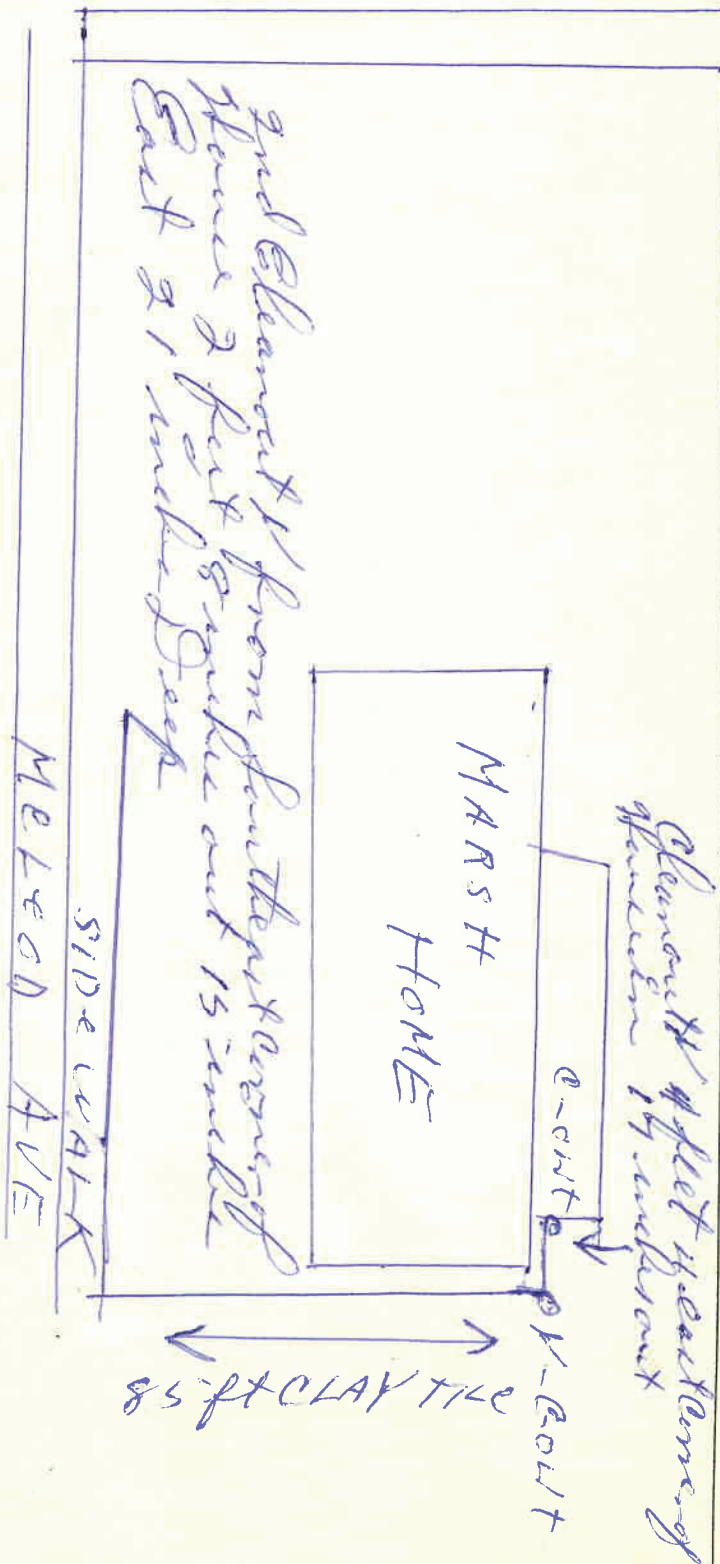 Cleanout Y 4 feet W east Corner of
House 17 inches out
C-OUT
Y-COUT
MARSH
HOME
85-ft CLAY TILE
2nd Cleanout Y from Southeast Corner of
House 2 feet 8 inches out 15 inches
East 21 inches Deep
SIDEWALK
MELEOD AVE